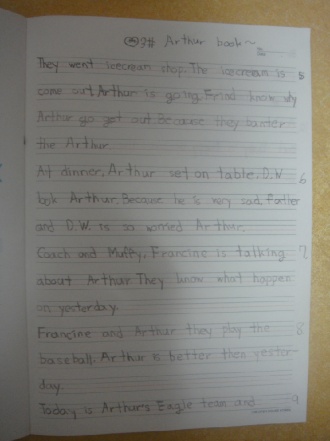 3# Arthur book~
They went icecream shop. The icecream is 5
come out Arthur is going. Frind know, why
Arthur go get out Because they banter
the Arthur
At dinner, Arthur set on table. D.W 6
look Arthur. Because he is very sad, Father
and D.W. is so worried Arthur.
Coach and Muffy, Francine is talking 7
about Arthur. They know what happen
on yesterday.
Francine and Arthur they play the 8
baseball. Arthur is better then yester-
day
Today is Arthur's Eagle team and 9